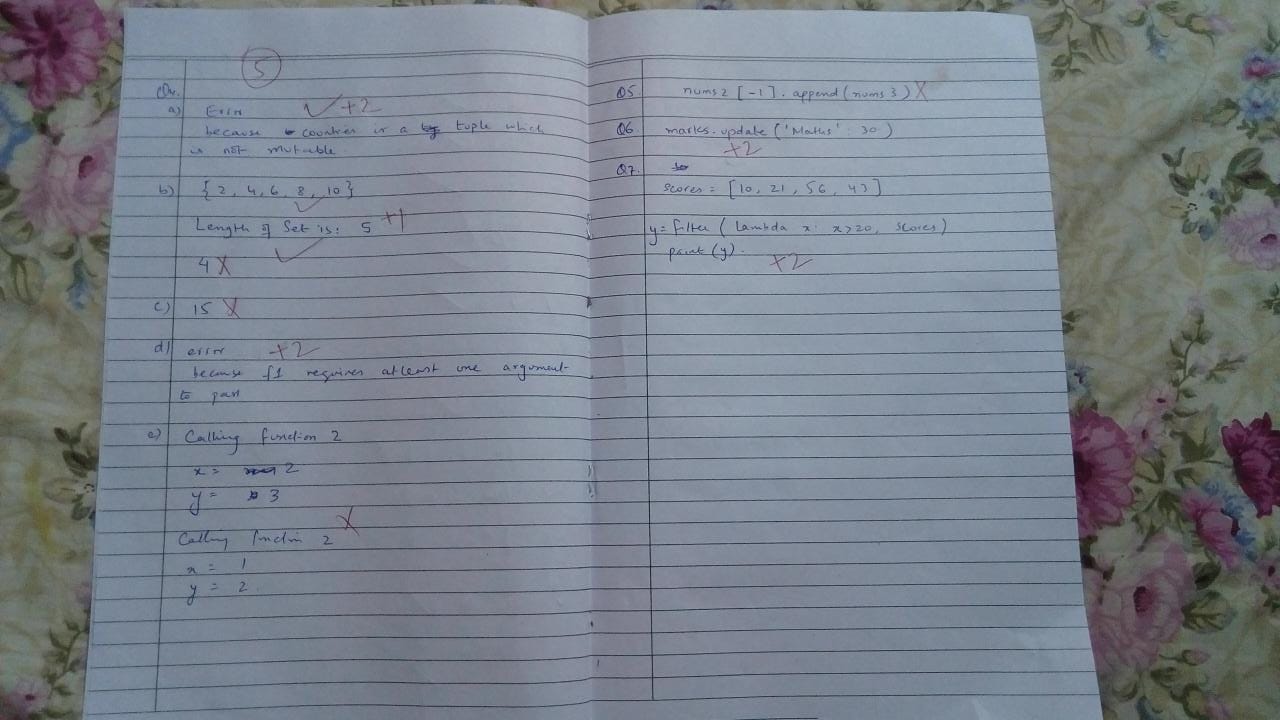 5
Q4.
a) Error ✓ +2
because countries is a tuple which
is not mutable
b) {2, 4, 6, 8, 10} ✓
Length of Set is: 5 +1
✓
4 X
c) 15 X
d) error +2
because f1 requires atleast one argument
to pass
e) Calling function 2
x = 2
y = 3
X
Calling function 2
x = 1
y = 2.
Q5 nums2[-1].append(nums3) X
Q6 marks.update('Maths': 30)
+2
Q7.
scores = [10, 21, 56, 43]
y = filter(lambda x: x>20, scores)
print(y).
+2